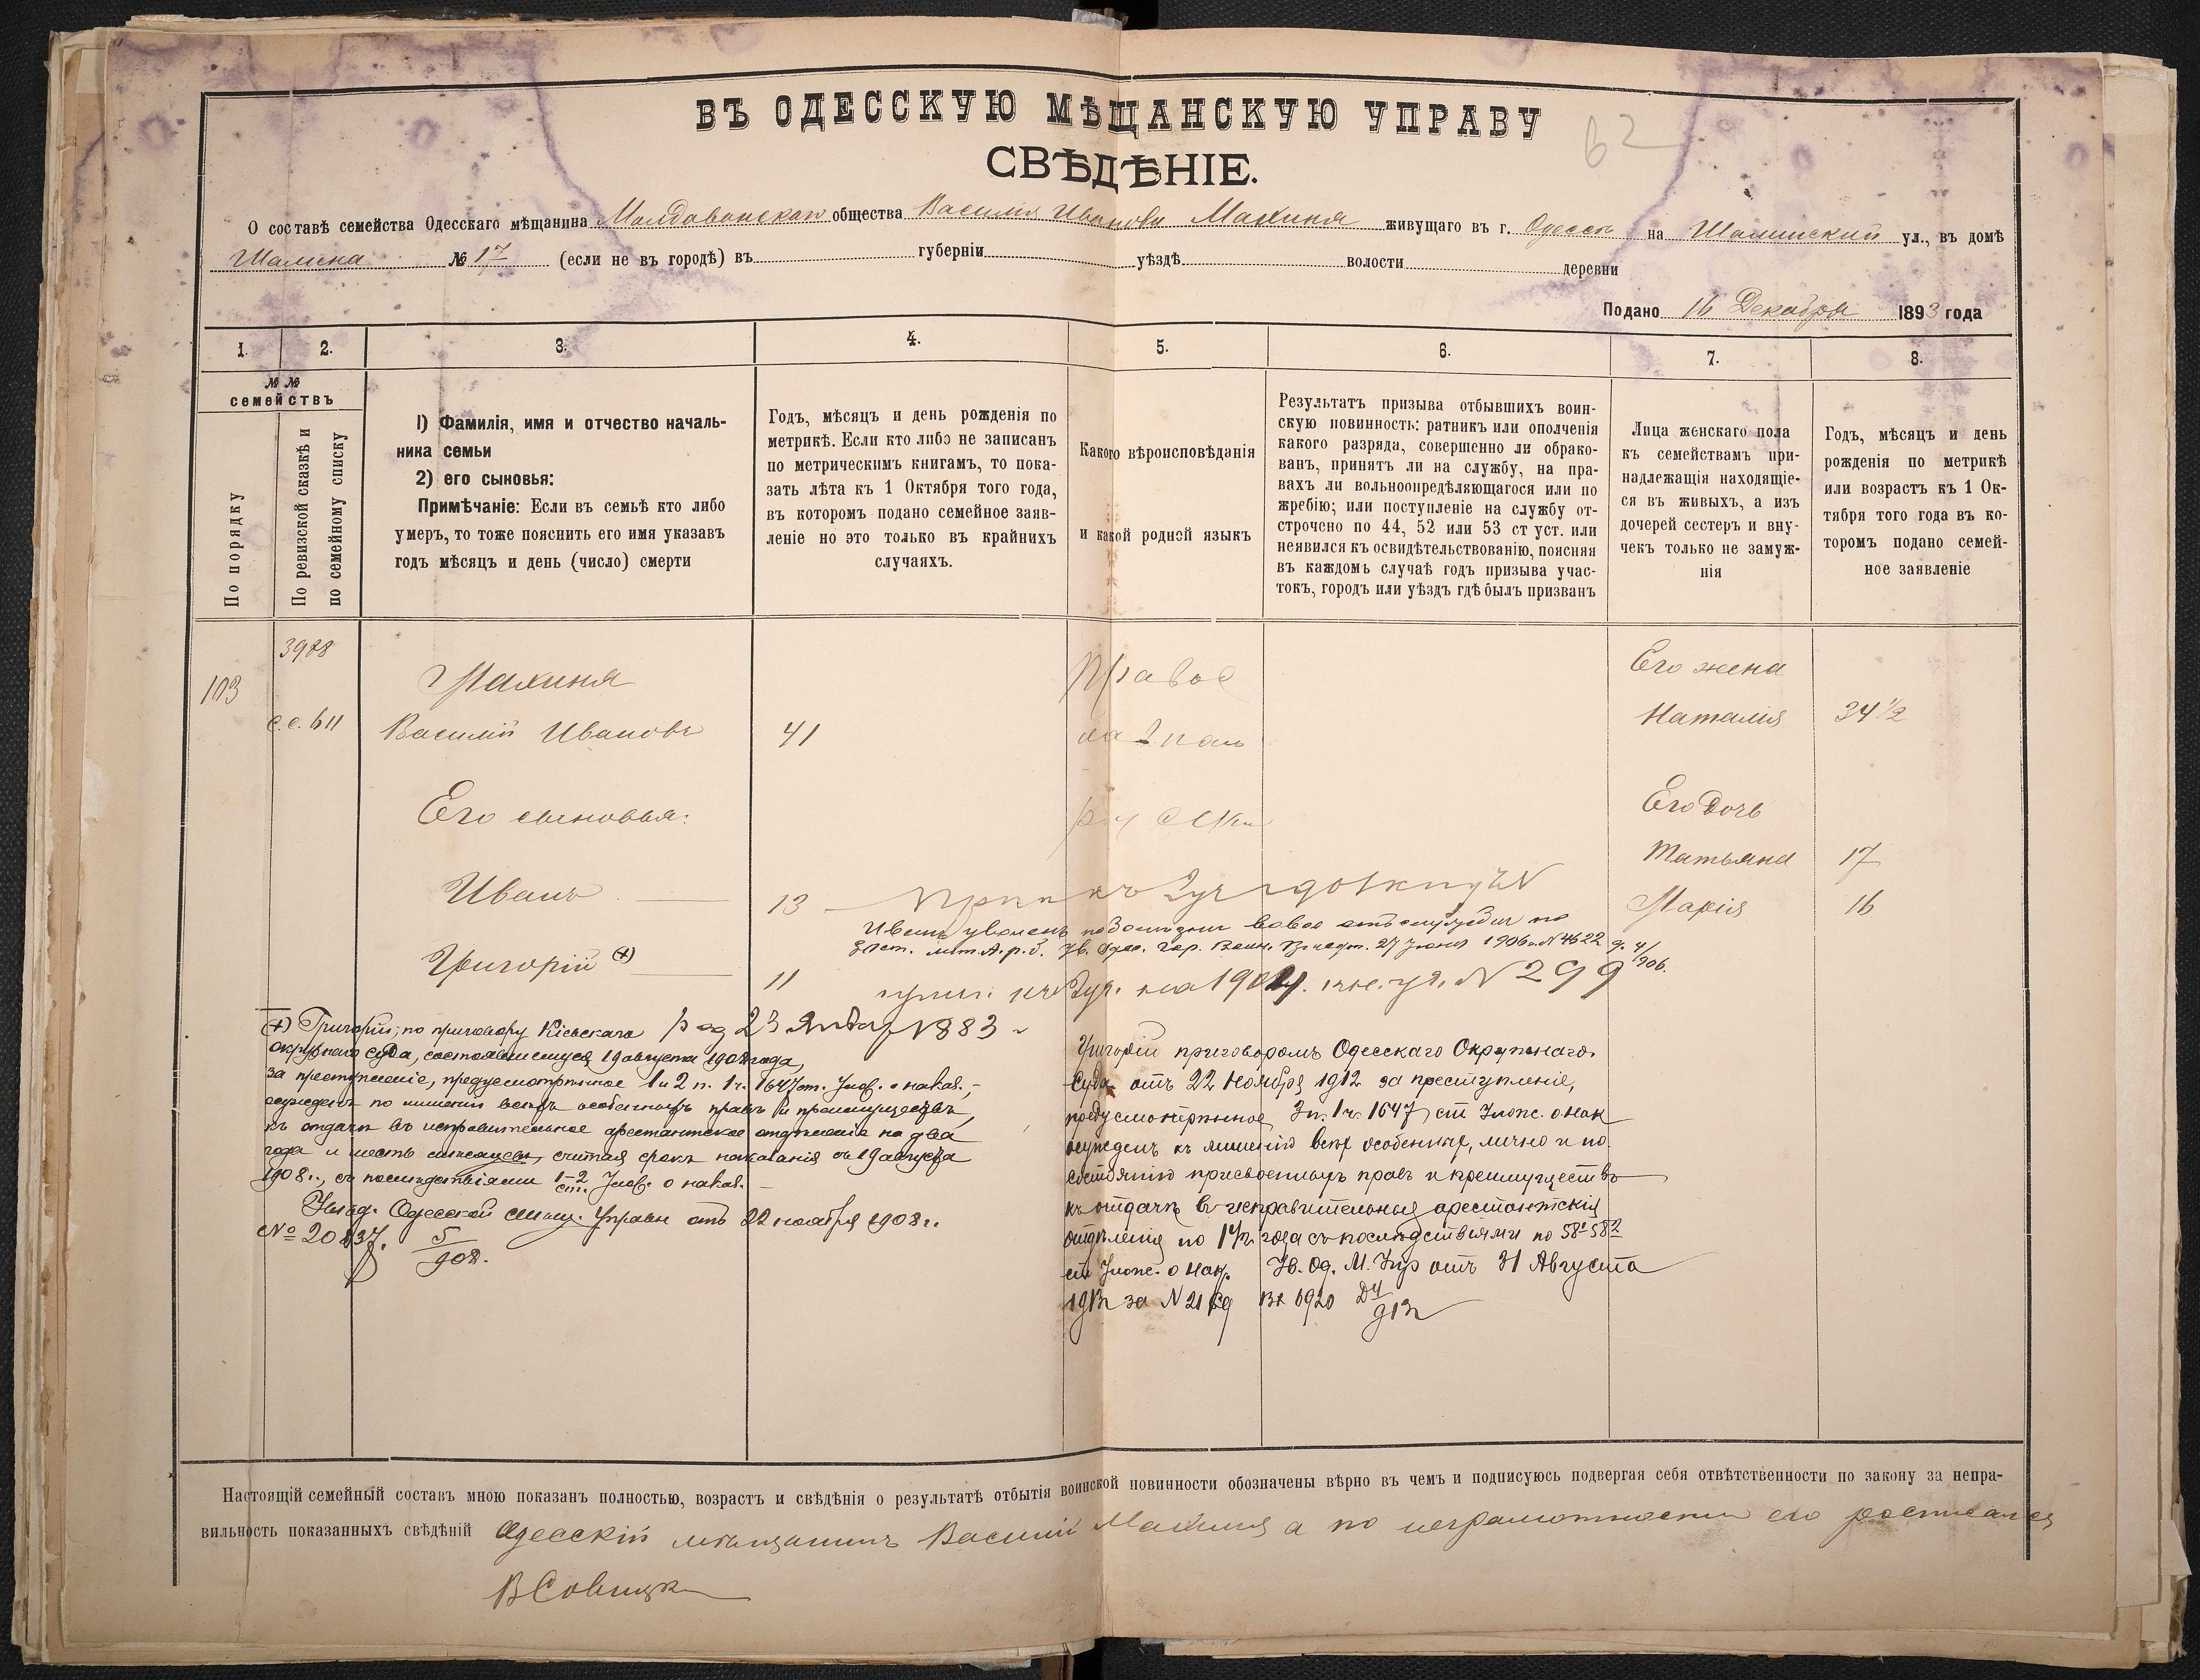 62
ВЪ ОДЕССКУЮ МѢЩАНСКУЮ УПРАВУ
СВѢДѢНІЕ.
О составѣ семейства Одесскаго мѣщанина Молдаванскаго общества Василія Иванова Махиня живущаго въ г. Одессѣ на Шалинской ул., въ домѣ
Шалина № 17 (если не въ городѣ) въ губерніи уѣздѣ волости деревни
Подано 16 Декабря 1893 года
1. 2. 3. 4. 5. 6. 7. 8.
№№
семействъ
По порядку
По ревизской сказкѣ и
по семейному списку
1) Фамилія, имя и отчество началь-
ника семьи
2) его сыновья:
Примѣчаніе: Если въ семьѣ кто либо
умеръ, то тоже пояснить его имя указавъ
годъ мѣсяцъ и день (число) смерти
Годъ, мѣсяцъ и день рожденія по
метрикѣ. Если кто либо не записанъ
по метрическимъ книгамъ, то пока-
зать лѣта къ 1 Октября того года,
въ которомъ подано семейное заяв-
леніе но это только въ крайнихъ
случаяхъ.
Какого вѣроисповѣданія
и какой родной языкъ
Результатъ призыва отбывшихъ воин-
скую повинность: ратникъ или ополченія
какого разряда, совершенно ли обрако-
ванъ, принятъ ли на службу, на пра-
вахъ ли вольноопредѣляющагося или по
жребію; или поступленіе на службу от-
строчено по 44, 52 или 53 ст уст. или
неявился къ освидѣтельствованію, поясняя
въ каждомъ случаѣ годъ призыва учас-
токъ, городъ или уѣздъ гдѣ былъ призванъ
Лица женскаго пола
къ семействамъ при-
надлежащія находящіе-
ся въ живыхъ, а изъ
дочерей сестеръ и вну-
чекъ только не замуж-
нія
Годъ, мѣсяцъ и день
рожденія по метрикѣ
или возрастъ къ 1 Ок-
тября того года въ ко-
торомъ подано семей-
ное заявленіе
103
3988
с.с. 611
Махиня
Василій Ивановъ 41
Правос
лавнаь
русски
Его жена
Наталія 34 1/2
Его сыновья:
Его дочь
Татьяна 17
Иванъ 13
Марія 16
Иванъ уволенъ вовсе отъ службы по
27 Іюня 1906 г. № 4622 д. 4/906.
Григорій (+) 11
прип. къ 2 уч. на 1904 г. № 299
род 23 Января 1883 г
(+) Григорій, по приговору Кіевскаго
окружнаго суда, состоявшемуся 19 августа 1908 года,
за преступленіе, предусмотрѣнное 1 и 2 п. 1 ч. 1647 ст. Улож. о наказ.,
осужденъ по лишеніи всѣхъ особенныхъ правъ и преимуществъ,
къ отдачѣ въ исправительное арестантское отдѣленіе на два
года и шесть мѣсяцевъ, считая срокъ наказанія съ 19 августа
1908 г., съ послѣдствіями 1-2 ст. Улож. о наказ.
Одесской мѣщ. Управы отъ 22 ноября 1908 г.
№ 20837. 5/908.
Григорій приговоромъ Одесскаго Окружнаго
Суда отъ 22 Ноября 1912 за преступленіе,
предусмотрѣнное 3 п. 1 ч. 1647 ст Улож. о нак
осужденъ къ лишенію всѣхъ особенныхъ, лично и по
состоянію присвоенныхъ правъ и преимуществъ
къ отдачѣ въ исправительныя арестантскія
отдѣленія по 1 1/2 года съ послѣдствіями по 58¹ 58²
ст Улож. о Нак. Ув. Од. М. Упр отъ 31 Августа
Настоящій семейный составъ мною показанъ полностью, возрастъ и свѣдѣнія о результатѣ отбытія воинской повинности обозначены вѣрно въ чемъ и подписуюсь подвергая себя отвѣтственности по закону за непра-
вильность показанныхъ свѣдѣній Одесскій мѣщанинъ Василій Махиня а по неграмотности его росписался